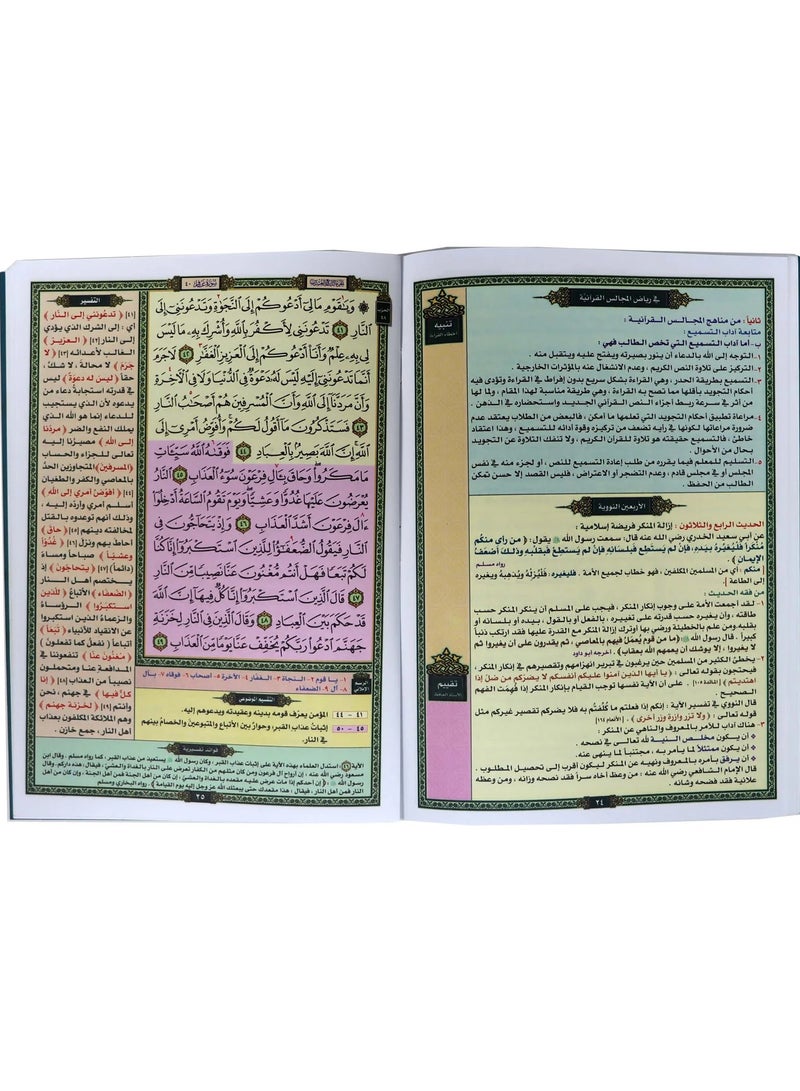 في رياض المجالس القرآنية
تنبيه
أخطاء القراءة
ثانياً : من مناهج المجالس القرآنية :
متابعة آداب التسميع :
ب- أما آداب التسميع التي تخص الطالب فهي :
١- التوجه إلى الله بالدعاء أن ينور بصيرته ويفتح عليه ويتقبل منه .
٢- التركيز على تلاوة النص الكريم ، وعدم الانشغال عنه بالمؤثرات الخارجية .
٣- التسميع بطريقة الحدر ، وهي القراءة بشكل سريع بدون إفراط في القراءة وتؤدى فيه
أحكام التجويد بأقلها مما تصح به القراءة ، وهي طريقة مناسبة لهذا المقام ، ولما لها
من أثر في سرعة ربط أجزاء النص القرآني الجديد واستحضاره في الذهن .
٤- مراعاة تطبيق أحكام التجويد التي تعلمها ما أمكن ، فالبعض من الطلاب يعتقد عدم
ضرورة مراعاتها لكونها في رأيه تضعف من تركيزه وقوة أدائه للتسميع ، وهذا اعتقاد
خاطئ ، فالتسميع حقيقته هو تلاوة للقرآن الكريم ، ولا تنفك التلاوة عن التجويد
بحال من الأحوال .
٥- التسليم للمعلم فيما يقرره من طلب إعادة التسميع للنص ، أو لجزء منه في نفس
المجلس أو في مجلس قادم ، وعدم التضجر أو الاعتراض ، فليس القصد إلا حسن تمكن
الطالب من الحفظ .
الأربعين النووية
الحديث الرابع والثلاثون : إزالة المنكر فريضة إسلامية :
عن أبي سعيد الخدري رضي الله عنه قال: سمعت رسول الله ﷺ يقول: ( من رأى منكم
منكراً فليغيره بيده، فإن لم يستطع فبلسانه، فإن لم يستطع فبقلبه وذلك أضعف
الإيمان ) رواه مسلم
[ منكم : أي من المسلمين المكلفين ، فهو خطاب لجميع الأمة . فليغيره : فليزله ويذهبه ويغيره
إلى الطاعة ]
من فقه الحديث :
١- لقد أجمعت الأمة على وجوب إنكار المنكر ، فيجب على المسلم أن ينكر المنكر حسب
طاقته ، وأن يغيره حسب قدرته على تغييره ، بالفعل أو بالقول ، بيده أو بلسانه أو
بقلبه .ومن علم بالخطيئة ورضي بها أو ترك إزالة المنكر مع القدرة عليها فقد ارتكب ذنباً
كبيراً . قال رسول الله ﷺ (ما من قوم يعمل فيهم بالمعاصي ، ثم يقدرون على أن يغيروا ثم
لا يغيروا ، إلا يوشك أن يعمهم الله بعقاب) . أخرجه أبو داود
٢- يخطئ الكثير من المسلمين حين يرغبون في تبرير انهزامهم وتقصيرهم في إنكار المنكر ،
فيحتجون بقوله تعالى : ﴿ يا أيها الذين آمنوا عليكم أنفسكم لا يضركم من ضل إذا
اهتديتم ﴾ [المائدة ١٠٥] . على أن الآية نفسها توجب القيام بإنكار المنكر إذا فهمت الفهم
الصحيح .
قال النووي في تفسير الآية : إنكم إذا فعلتم ما كلفتم به فلا يضركم تقصير غيركم مثل
قوله تعالى : ﴿ ولا تزر وازرة وزر أخرى ﴾ . [الأنعام ١٦٤]
٣- هناك آداب للآمر بالمعروف والناهي عن المنكر :
أن يكون مخلص النية لله تعالى في نصحه .
أن يكون ممتثلاً لما يأمر به ، مجتنباً لما ينهى عنه .
أن يرفق بأمره بالمعروف ونهيه عن المنكر ليكون أقرب إلى تحصيل المطلوب .
قال الإمام الشافعي رضي الله عنه : من وعظ أخاه سراً فقد نصحه وزانه ، ومن وعظه
علانية فقد فضحه وشانه .
تقييم
٢٤
٤٠
الحزب
٤٨
۞ وَيَٰقَوْمِ مَا لِىٓ أَدْعُوكُمْ إِلَى ٱلنَّجَوٰةِ وَتَدْعُونَنِىٓ إِلَى
ٱلنَّارِ ٤١ تَدْعُونَنِى لِأَكْفُرَ بِٱللَّهِ وَأُشْرِكَ بِهِۦ مَا لَيْسَ
لِى بِهِۦ عِلْمٌ وَأَنَا۠ أَدْعُوكُمْ إِلَى ٱلْعَزِيزِ ٱلْغَفَّٰرِ ٤٢ لَا جَرَمَ
أَنَّمَا تَدْعُونَنِىٓ إِلَيْهِ لَيْسَ لَهُۥ دَعْوَةٌ فِى ٱلدُّنْيَا وَلَا فِى ٱلْءَاخِرَةِ
وَأَنَّ مَرَدَّنَآ إِلَى ٱللَّهِ وَأَنَّ ٱلْمُسْرِفِينَ هُمْ أَصْحَٰبُ ٱلنَّارِ
٤٣ فَسَتَذْكُرُونَ مَآ أَقُولُ لَكُمْ وَأُفَوِّضُ أَمْرِىٓ إِلَى
ٱللَّهِ إِنَّ ٱللَّهَ بَصِيرٌۢ بِٱلْعِبَادِ ٤٤ فَوَقَىٰهُ ٱللَّهُ سَيِّـَٔاتِ
مَا مَكَرُوا۟ وَحَاقَ بِـَٔالِ فِرْعَوْنَ سُوٓءُ ٱلْعَذَابِ ٤٥ ٱلنَّارُ
يُعْرَضُونَ عَلَيْهَا غُدُوًّا وَعَشِيًّا وَيَوْمَ تَقُومُ ٱلسَّاعَةُ أَدْخِلُوٓا۟
ءَالَ فِرْعَوْنَ أَشَدَّ ٱلْعَذَابِ ٤٦ وَإِذْ يَتَحَآجُّونَ فِى
ٱلنَّارِ فَيَقُولُ ٱلضُّعَفَٰٓؤُا۟ لِلَّذِينَ ٱسْتَكْبَرُوٓا۟ إِنَّا كُنَّا
لَكُمْ تَبَعًا فَهَلْ أَنتُم مُّغْنُونَ عَنَّا نَصِيبًا مِّنَ ٱلنَّارِ
٤٧ قَالَ ٱلَّذِينَ ٱسْتَكْبَرُوٓا۟ إِنَّا كُلٌّ فِيهَآ إِنَّ ٱللَّهَ
قَدْ حَكَمَ بَيْنَ ٱلْعِبَادِ ٤٨ وَقَالَ ٱلَّذِينَ فِى ٱلنَّارِ لِخَزَنَةِ
جَهَنَّمَ ٱدْعُوا۟ رَبَّكُمْ يُخَفِّفْ عَنَّا يَوْمًا مِّنَ ٱلْعَذَابِ ٤٩
الرسم
الإملائي
١- يا قوم ٢- النجاة ٣- الغفار ٤- الآخرة ٥- أصحاب ٦- فوقاه ٧- بآل
٨- آل ٩- الضعفاء
التقسيم الموضوعي
٤١ - ٤٤ المؤمن يعرف قومه بدينه وعقيدته ويدعوهم إليه.
٤٥ - ٥٠ إثبات عذاب القبر، وحوار بين الأتباع والمتبوعين والخصام بينهم
في النار.
التفسير
[٤١] ﴿ تدعونني إلى النار ﴾
أي : إلى الشرك الذي يؤدي
إلى النار [٤٢] ﴿ العزيز ﴾
الغالب لأعدائه [٤٣] ﴿ لا
جرم ﴾ لا محالة ، لا شك ،
حقاً ﴿ ليس له دعوة ﴾ ليس
في قدرته استجابة دعاء من
يدعوه لأن الذي يستجيب
للدعاء إنما هو الله الذي
يملك النفع والضر ﴿ مردنا
إلى الله ﴾ مصيرنا إليه
تعالى للجزاء والحساب
﴿المسرفين﴾ المتجاوزين الحد
بالمعاصي والكفر والطغيان
[٤٤] ﴿أفوض أمري إلى الله﴾
أسلم أمري وأرده إليه ،
وذلك أنهم توعدوه بالقتل
لمخالفته دينهم [٤٥] ﴿ حاق ﴾
أحاط بهم ونزل [٤٦] ﴿ غدوا
وعشيا ﴾ صباحاً ومساءً
(دائماً) [٤٧] ﴿ يتحاجون ﴾ إذ
يختصم أهل النار
﴿ الضعفاء ﴾ الأتباع ﴿ للذين
استكبروا ﴾ الرؤساء
والزعماء الذين استكبروا
عن الانقياد للأنبياء ﴿ تبعا ﴾
أتباعاً (نفعل كما تفعلون)
﴿ مغنون عنا ﴾ تنفعوننا في
المدافعة عنا ومتحملون
نصيباً من العذاب [٤٨] ﴿ إنا
كل فيها ﴾ في جهنم ، نحن
وأنتم [٤٩] ﴿ لخزنة جهنم ﴾
وهم الملائكة المكلفون بعذاب
أهل النار ، جمع خازن .
فوائد تفسيرية
الآية (٤٦) : استدل العلماء بهذه الآية على إثبات عذاب القبر ، وكان رسول الله ﷺ يستعيذ من عذاب القبر، كما رواه مسلم . وقال ابن
مسعود رضي الله عنه : إن أرواح آل فرعون ومن كان مثلهم من الكفار تعرض على النار بالغداة والعشي ، فيقال : هذه داركم . وقال
رسول الله ﷺ : إن أحدكم إذا مات عرض عليه مقعده بالغداة والعشي ، إن كان من أهل الجنة فمن أهل الجنة ، وإن كان من أهل
النار فمن أهل النار ، فيقال : هذا مقعدك حتى يبعثك الله عز وجل إليه يوم القيامة ) . رواه البخاري ومسلم
٢٥